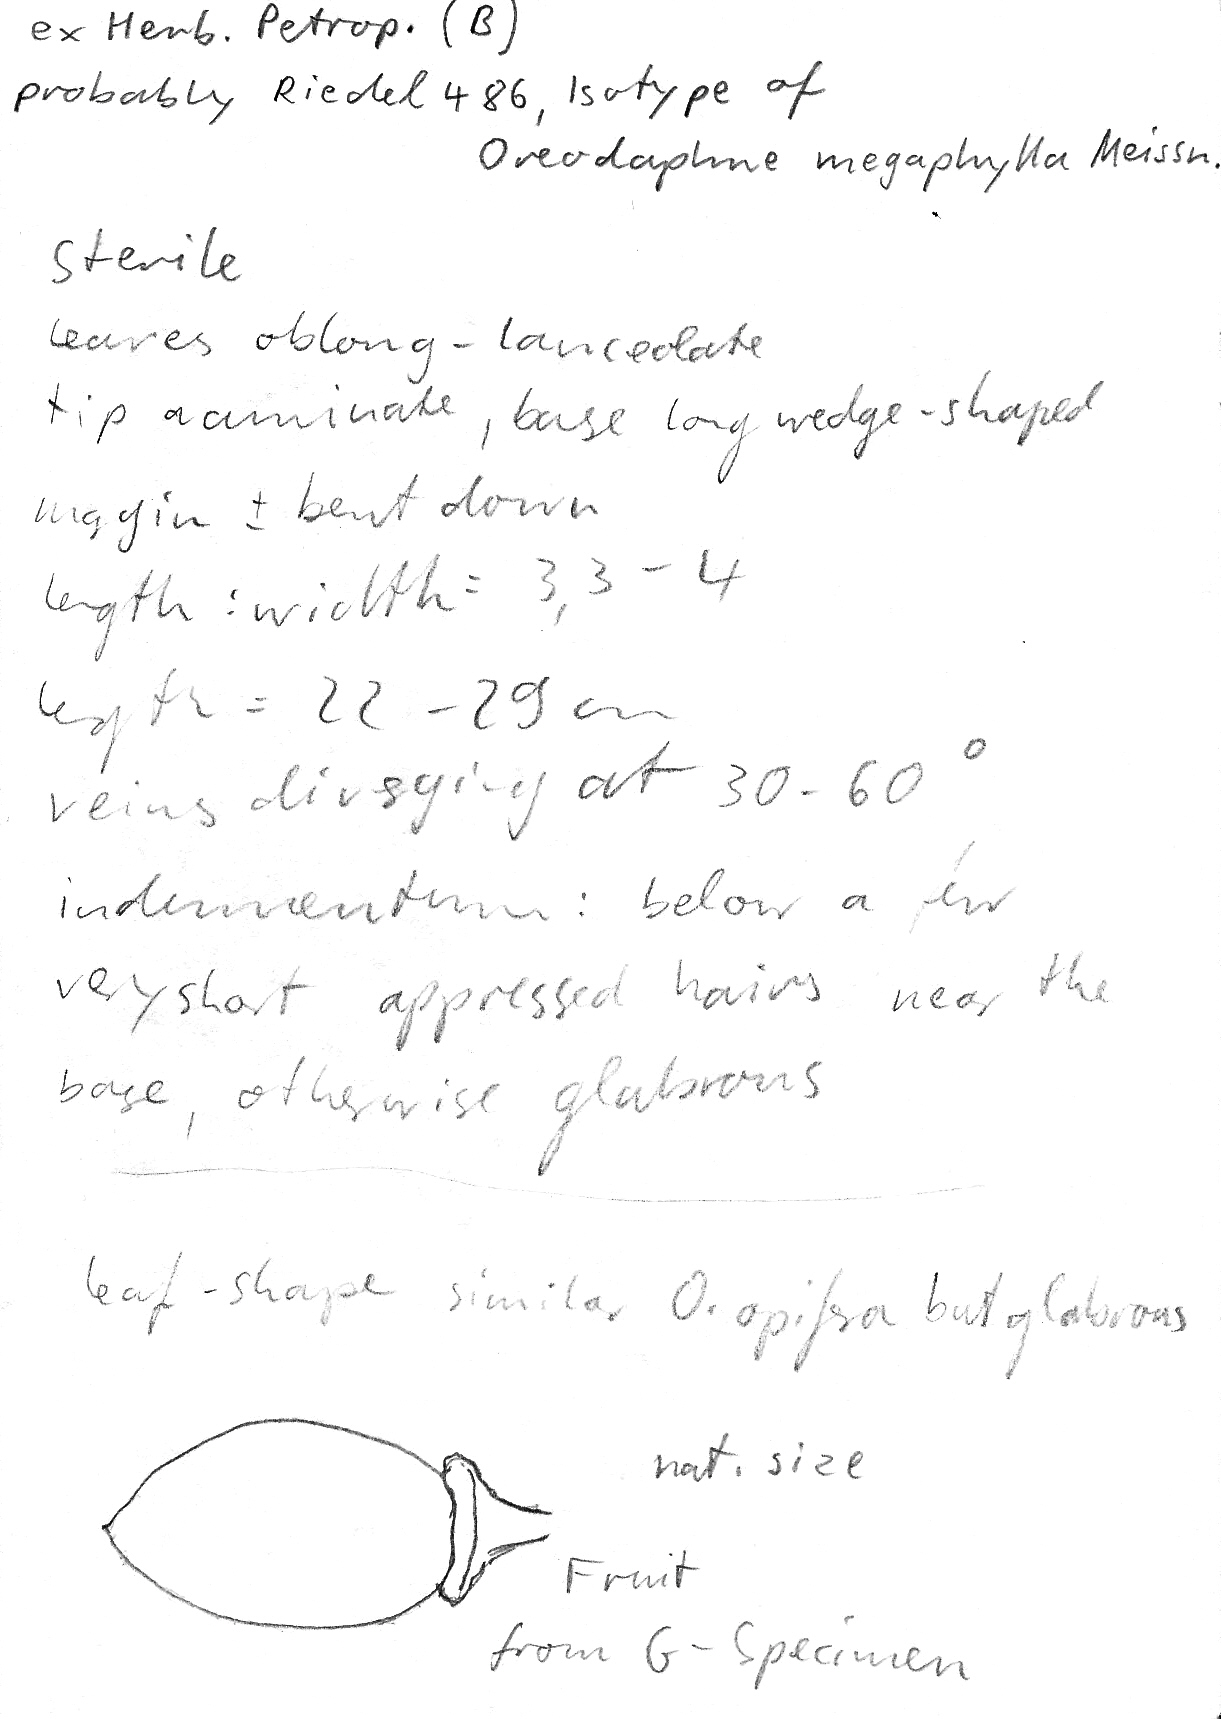 ex Herb. Petrop. (B)
probably Riedel 486, Isotype of
Oreodaphne megaphylla Meissn.
sterile
leaves oblong-lanceolate
tip acuminate, base long wedge-shaped
margin ± bent down
length : width = 3,3 - 4
length = 22 - 29 cm
veins diverging at 30 - 60°
indumentum : below a few
very short appressed hairs near the
base, otherwise glabrous
leaf-shape similar O. opifera but glabrous
nat. size
Fruit
from G-Specimen